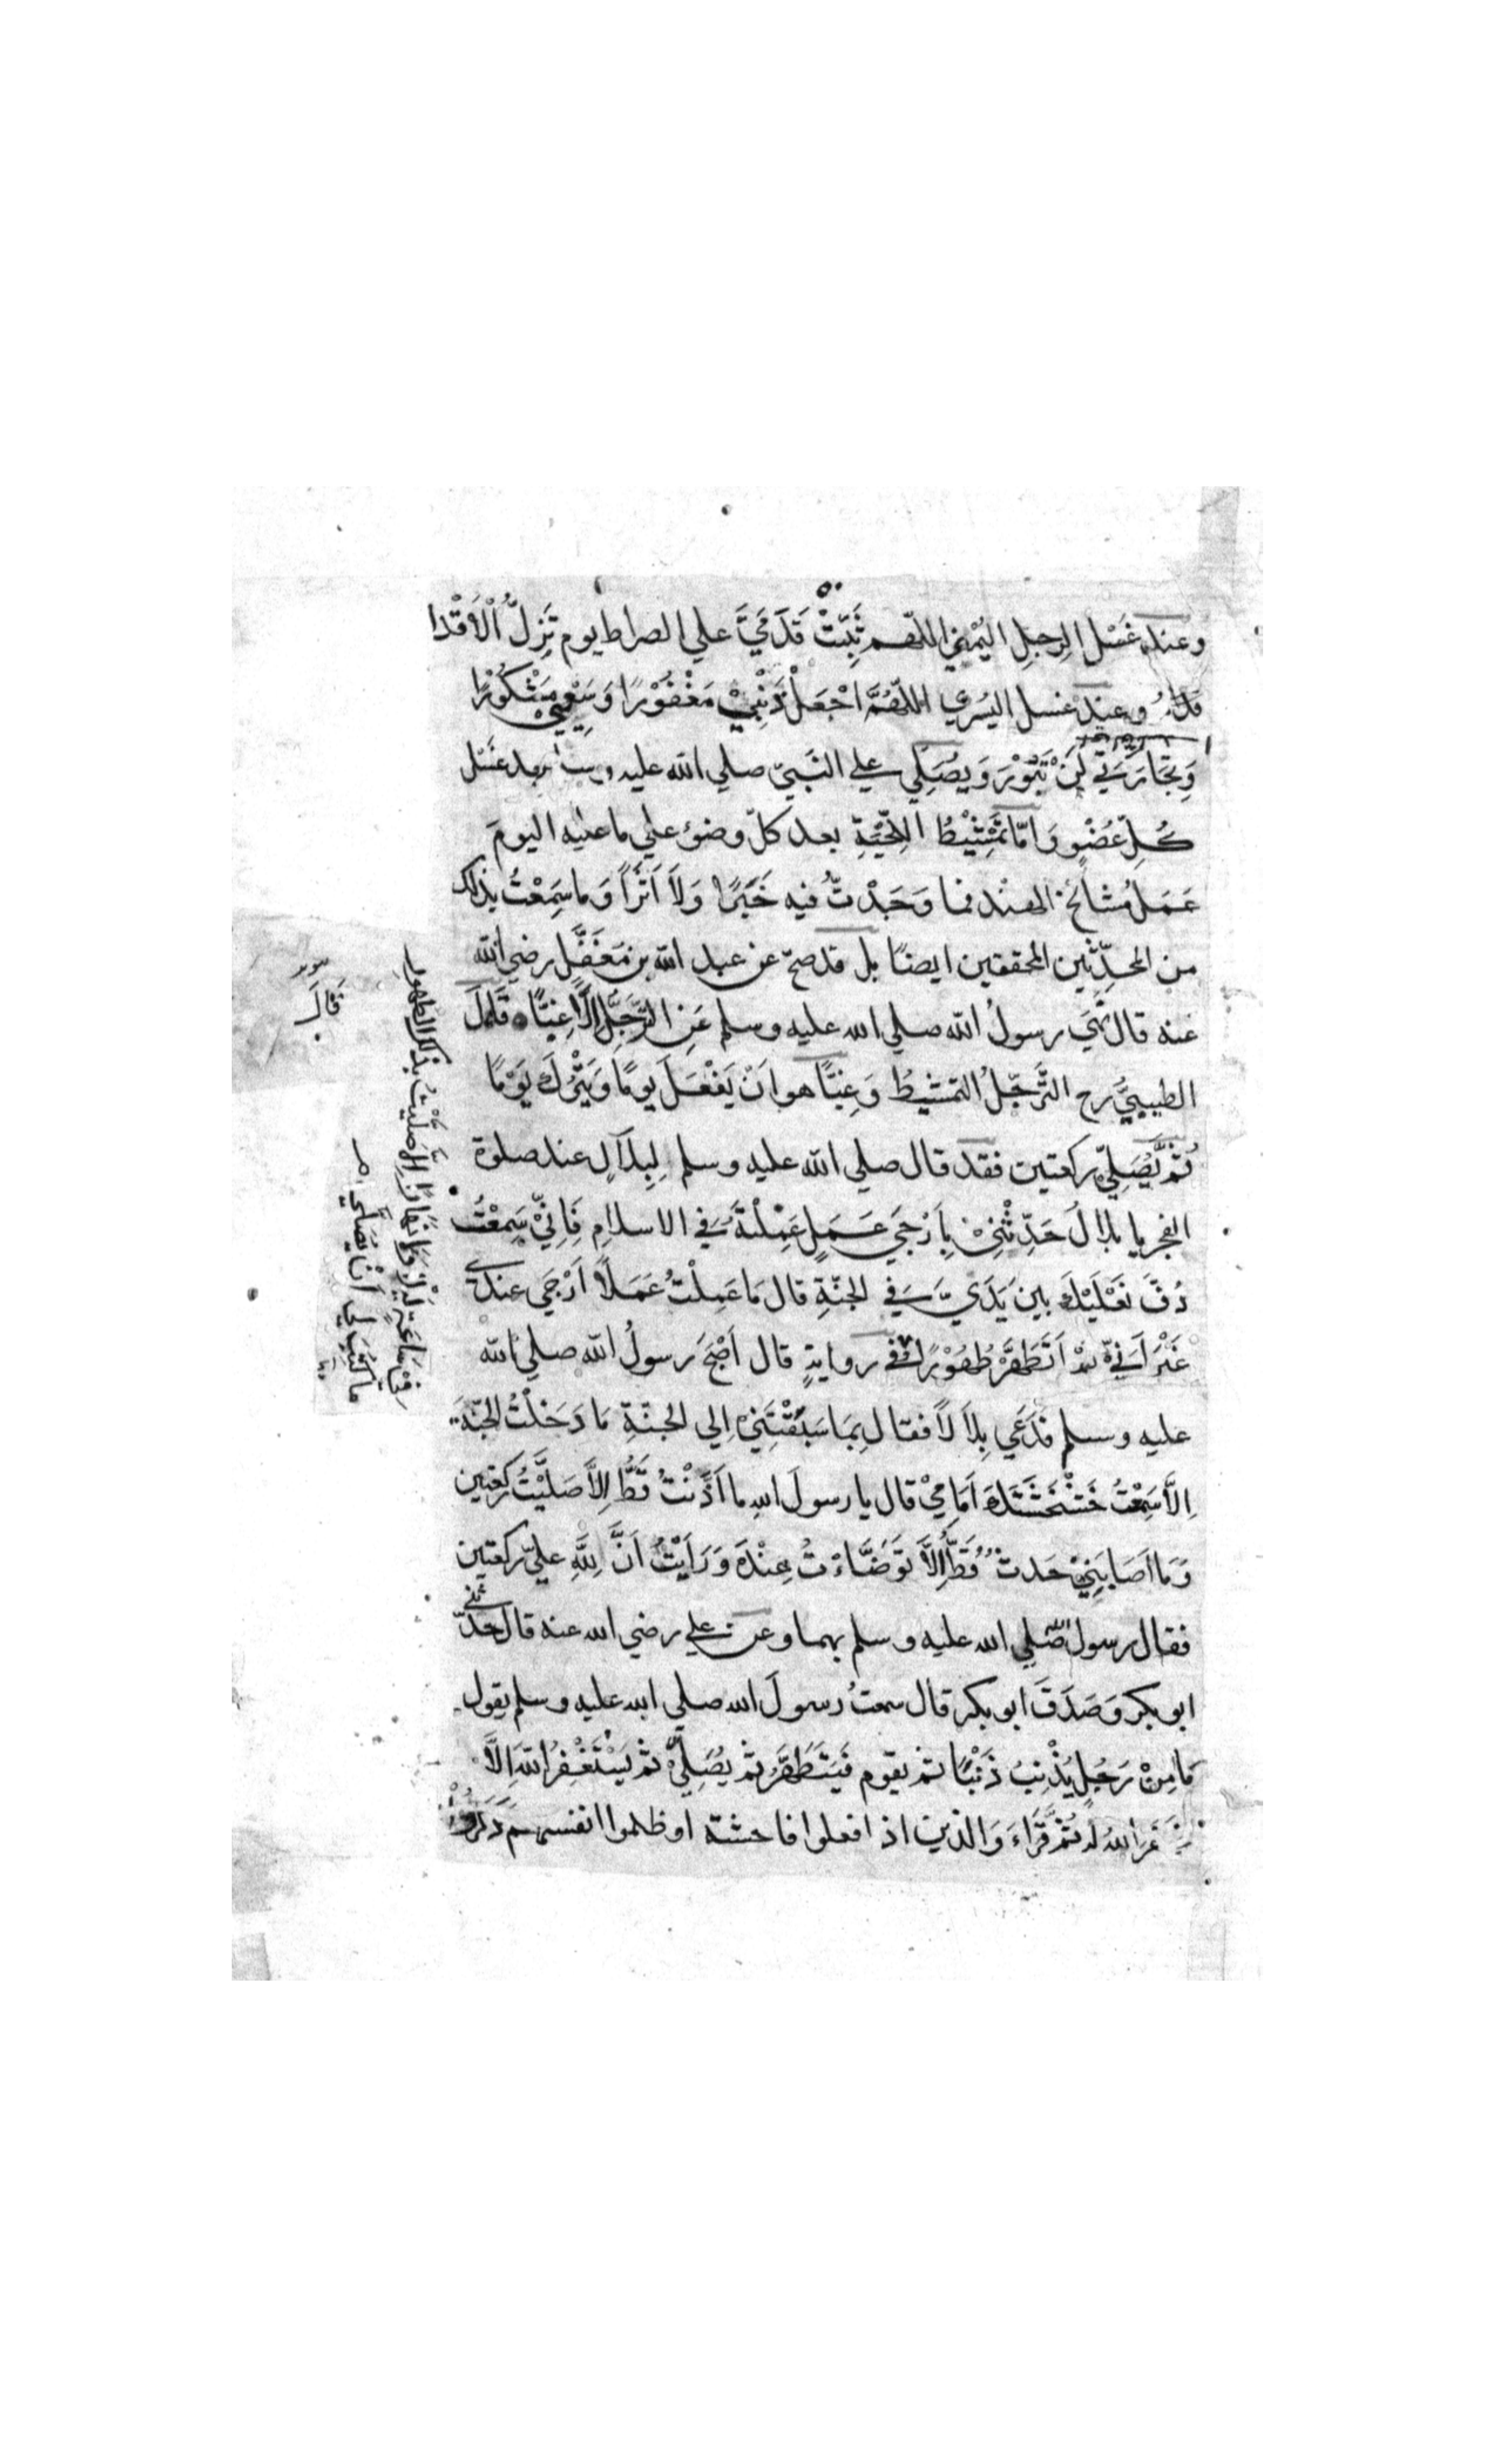 وعند غَسْل الرجلِ اليُمْنٰي اللّٰهم ثَبِّتْ قَدَمَيَّ علي الصراط يوم تَزِلُّ الْاَقْدا
وعِندَ غسل اليُسري اللّٰهُمَّ اجْعَلْ ذَنْبِيْ مَغْفُوْرًا وَسَعْيِيْ مَشْكُوْرًا
وَتِجَارَتِيْ لَنْ تَبُوْرَ وَيُصَلِّي علي النَّبيّ صلي الله عليه وسلم بعد غَسْل
كُلِّ عُضْوٍ وَامّا تَمْشِيْطُ اللِّحْيَةِ بعد كلّ وضوء علي ما عليه اليومَ
عَمَلُ مشائخ الهند فما وَجَدْتُ فيه خَبَرًا وَلَا اَثَرًا وَما سَمِعْتُ بذلك
من المحدِّثين المحققين ايضا بل قد صحّ عن عبد الله بن مُغَفَّل رضي الله
عنه قال نَهَي رسولُ الله صلي الله عليه وسلم عَنِ التَّرَجُّلِ اِلَّا غِبًّا قَالَ
الطيبيُّ رح التَّرَجّلُ التمشيطُ وَغِبًّا هو اَنْ يَفْعَلَ يومًا وَيَتْرُكَ يَوْمًا
ثُمَّ يُصَلِّيْ ركعتين فقد قال صلي الله عليه وسلم لِبِلَالٍ عند صلوة
الفجر يا بلالُ حَدِّثْنِيْ بِاَرْجَي عَمَلٍ عَمِلْتَهُ في الاسلامِ فَاِنِّيْ سَمِعْتُ
دُفَّ نَعْلَيْكَ بين يَدَيَّ في الجنّةِ قال مَا عَمِلْتُ عَمَلًا اَرْجَي عندي
غَيْرَ اَنِّيْ لَمْ اَتَطَهَّرْ طُهُوْرًا وفي روايةٍ قال اَصْبَحَ رسولُ الله صلي الله
عليه وسلم فَدَعَي بِلَالًا فقال بِمَا سَبَقْتَنِيْ اِلي الجنّةِ مَا دَخَلْتُ الجَنَّةَ
اِلَّا سَمِعْتُ خَشْخَشَتَكَ اَمَامِيْ قال يا رسولَ اللهِ ما اَذَّنْتُ قَطُّ اِلَّا صَلَّيْتُ ركعتين
وَمَا اَصَابَنِيْ حَدثٌ قَطُّ اِلَّا تَوَضَّاْتُ عِنْدَهُ وَرَاَيْتُ اَنَّ لِلّٰهِ عليَّ ركعتين
فقال رسول الله صلي الله عليه وسلم بهما وعن علي رضي الله عنه قال حَدّثني
ابو بكر وَصَدَقَ ابو بكر قال سمعتُ رسولَ الله صلي الله عليه وسلم يقول
مَا مِنْ رَجُلٍ يُذْنِبُ ذَنْبًا ثم يقوم فَيَتَطَهَّرُ ثم يُصَلِّيْ ثم يَسْتَغْفِرُ اللهَ اِلَّا
غَفَرَ اللهُ لَهُ ثُمَّ قَرَاَ وَالذين اذا فعلوا فاحشة او ظلموا انفسهم ذَكَرُوْا
في سَاعَةٍ لَيْلٍ وَلَا نَهَارٍ اِلَّا صَلَّيْتُ بذٰلك الطهور
ما كُتِبَ لِي اَنْ اُصَلِّي
قَالَ